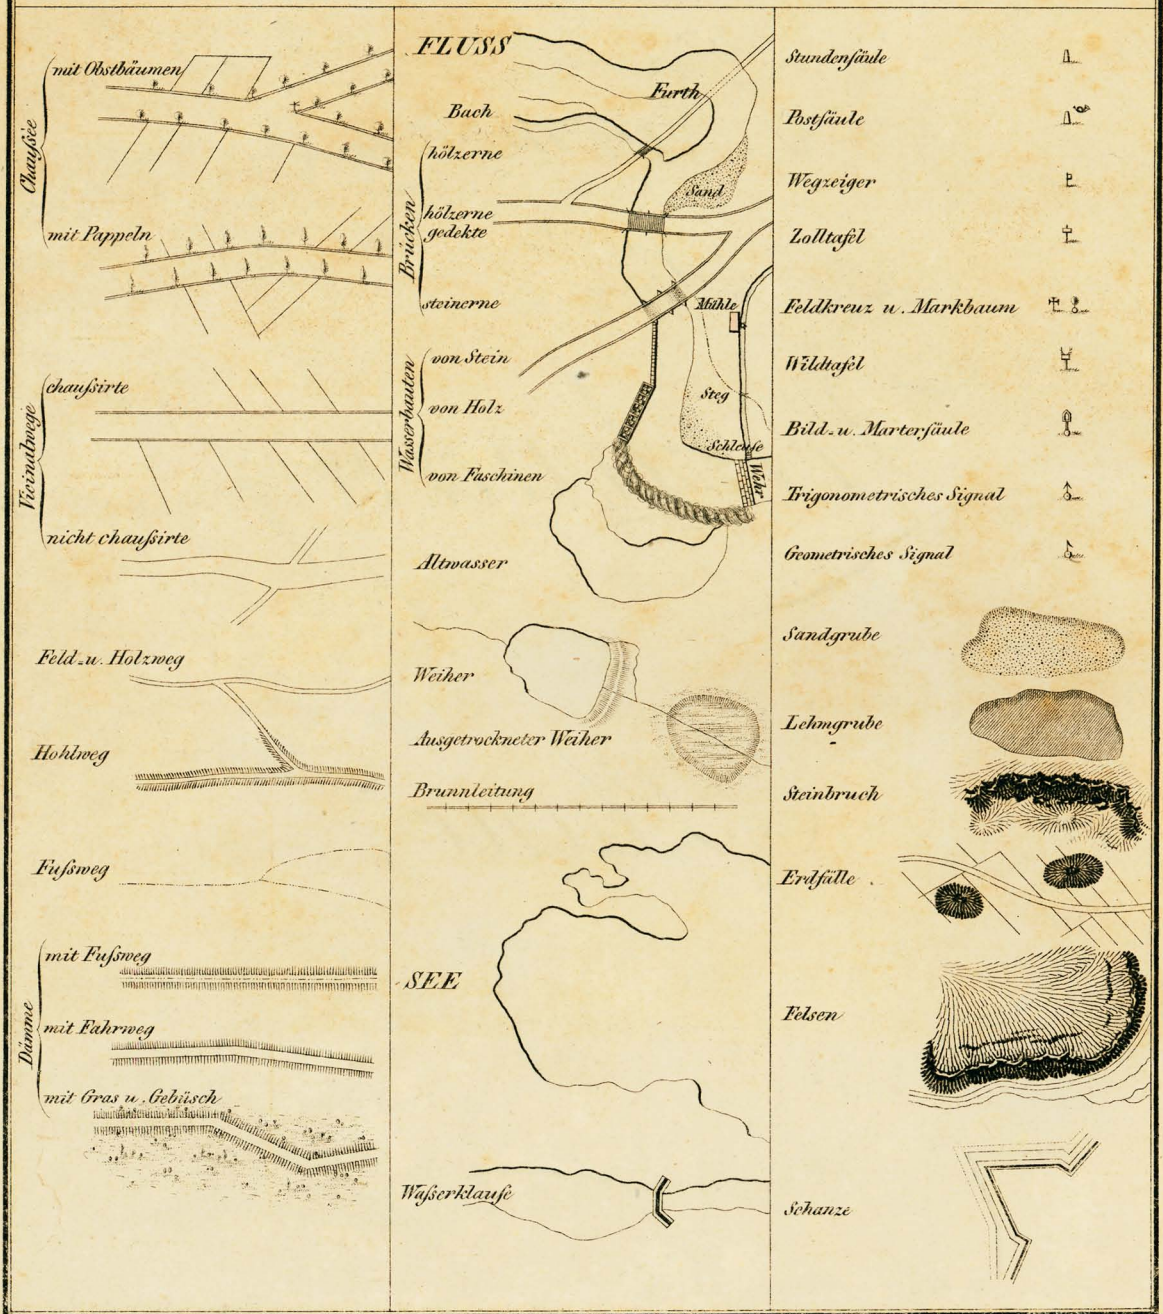 Chauſsée
mit Obstbäumen
mit Pappeln
Vicinalwege
chauſsirte
nicht chauſsirte
Feld-u. Holzweg
Hohlweg
Fuſsweg
Dämme
mit Fuſsweg
mit Fahrweg
mit Gras u. Gebüsch
FLUSS
Furth
Bach
Brücken
hölzerne
Sand
hölzerne
gedekte
steinerne
Mühle
Wasserbauten
von Stein
von Holz
Steg
Schleuſse
von Faschinen
Wehr
Altwasser
Weiher
Ausgetrockneter Weiher
Brunnleitung
SEE
Waſserklauſe
Stundenſäule
Postſäule
Wegzeiger
Zolltafel
Feldkreuz u. Markbaum
Wildtafel
Bild-u. Marterſäule
Trigonometrisches Signal
Geometrisches Signal
Sandgrube
Lehmgrube
Steinbruch
Erdfälle.
Felsen
Schanze